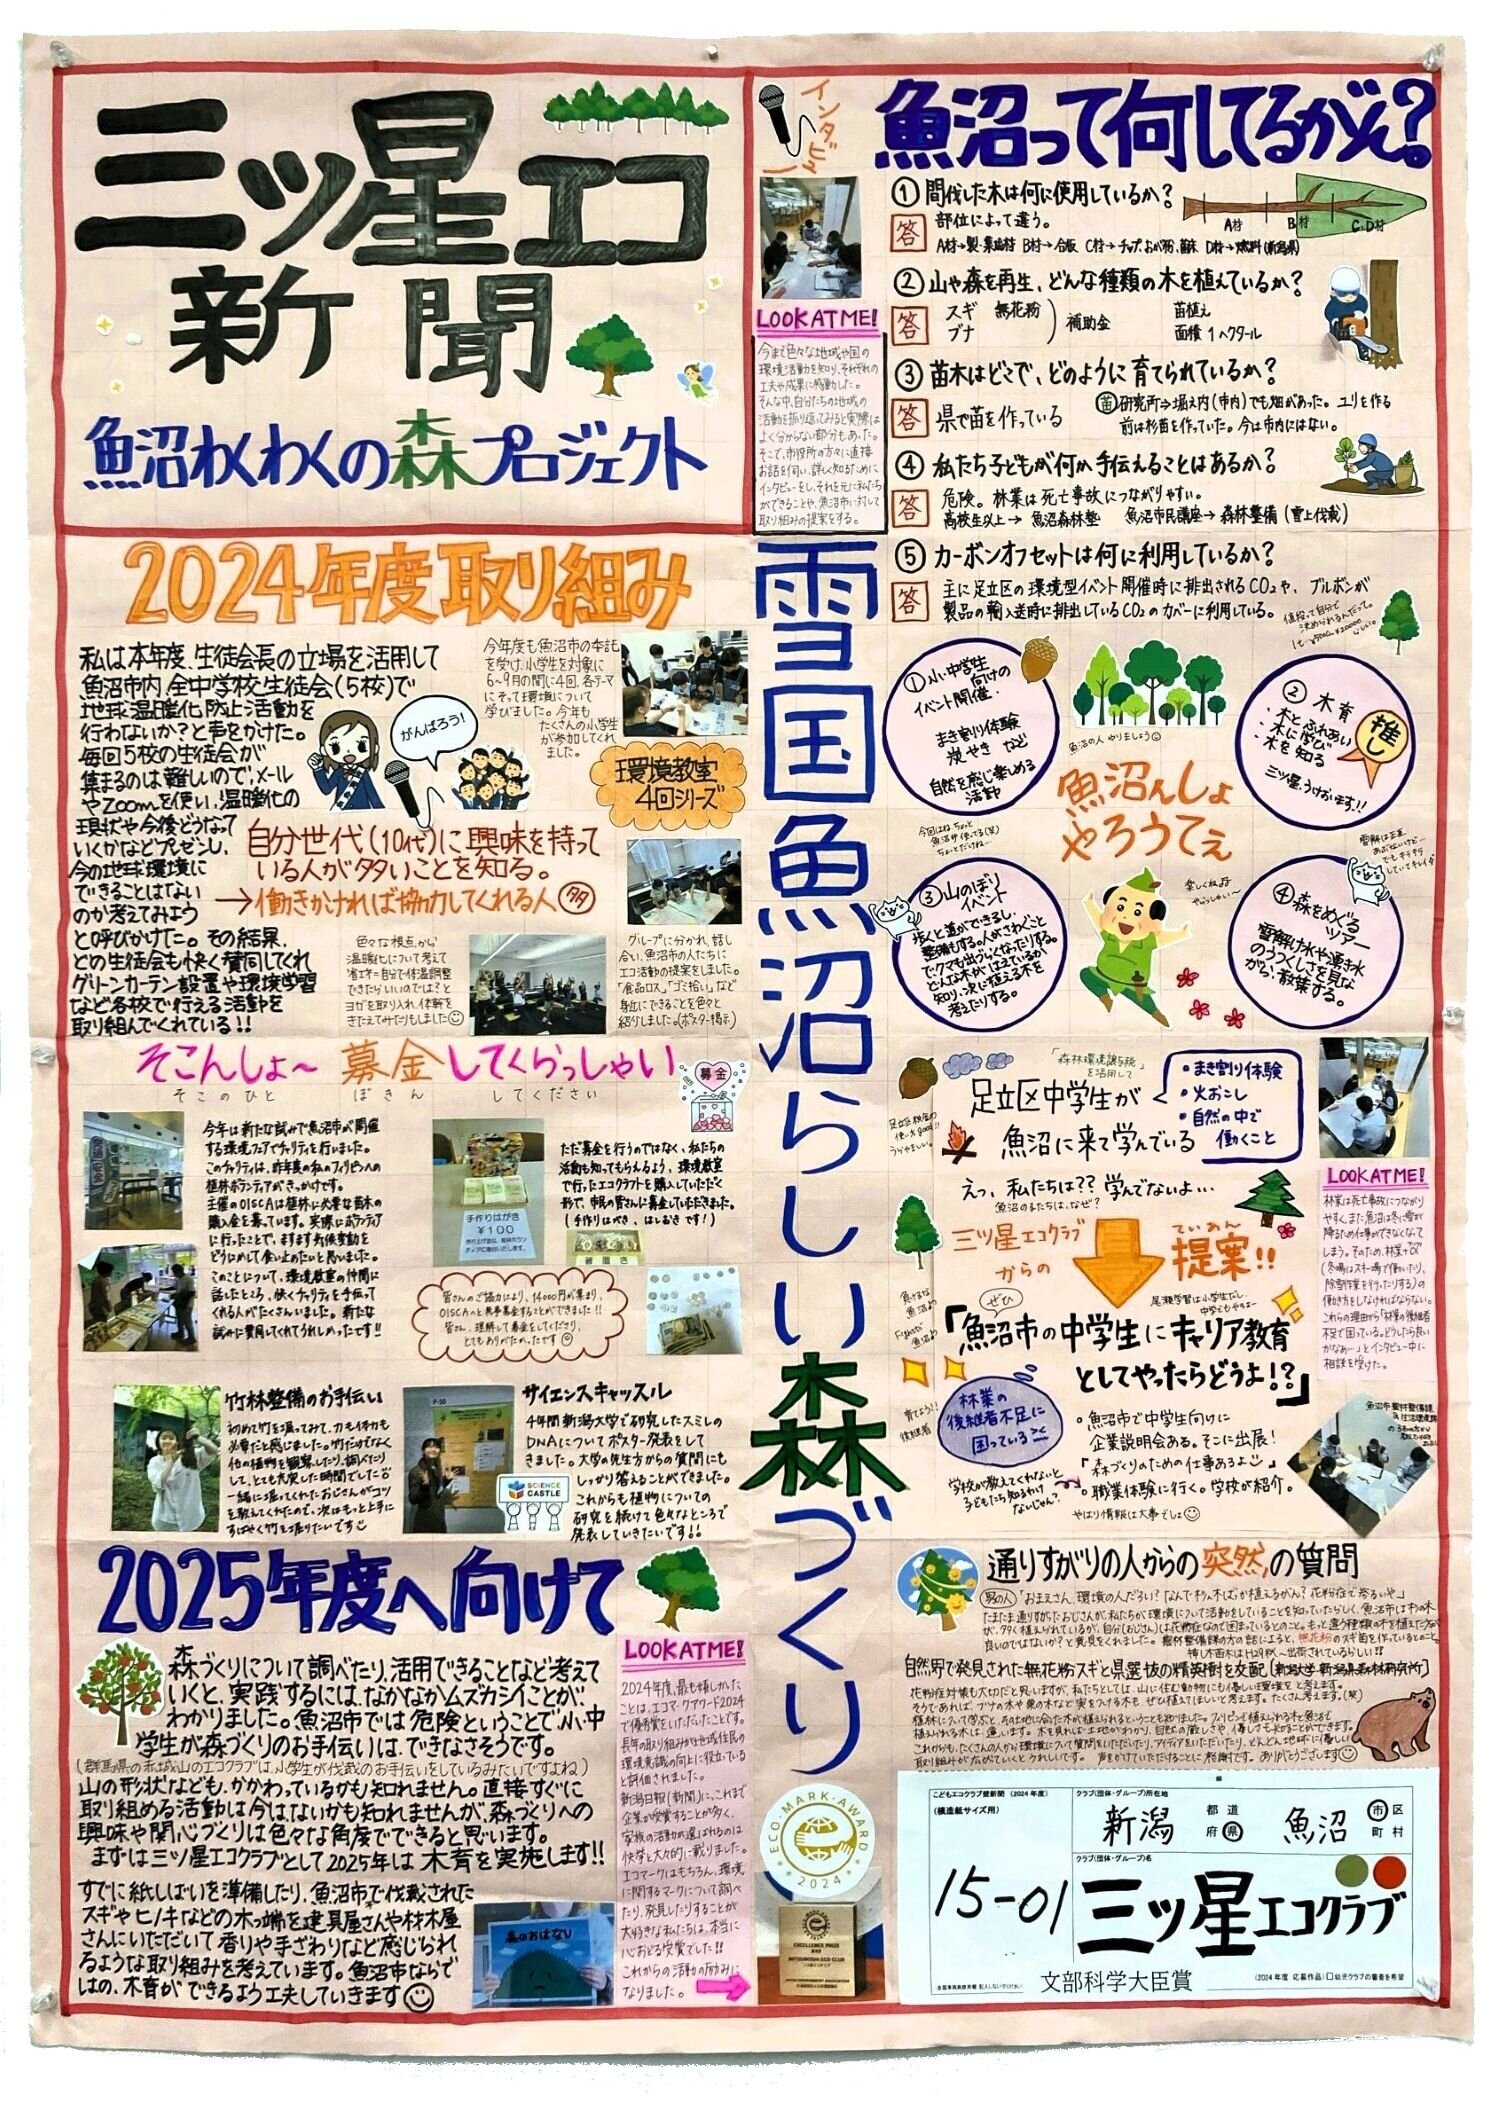 三ッ星エコ
新聞
魚沼わくわくの森プロジェクト
インタビュー
魚沼って何してるがん?
① 間伐した木は何に使用しているか?
答 部位によって違う。
A材→製・集成材 B材→合板 C材→チップ、おが粉、菌床 D材→燃料(新潟県)
A材 B材 C,D材
② 山や森を再生、どんな種類の木を植えているか?
答 スギ 無花粉
ブナ
補助金
苗植え
面積 1ヘクタール
③ 苗木はどこで、どのように育てられているか?
答 県で苗を作っている
苗 研究所⇒堀え内(市内)でも畑があった。ユリを作る
前は杉苗を作っていた。今は市内にはない。
④ 私たち子どもが何か手伝えることはあるか?
答 危険。林業は死亡事故につながりやすい。
高校生以上→ 魚沼森林塾 魚沼市民講座→森林整備(雪上伐載)
⑤ カーボンオフセットは何に利用しているか?
答 主に足立区の環境型イベント開催時に排出されるCO2や、ブルボンが
製品の輸入送時に排出しているCO2のカバーに利用している。
LOOK AT ME!
今まで色々な地域や国の
環境活動を知り、それぞれの
工夫や成果に感動した。
そんな中、自分たちの地域の
活動を振り返ってみると実際は
よく分からない部分もあった。
そこで、市役所の方々に直接
お話を伺い、詳しく知るために
インタビューをし、それを元に私たち
ができることや、魚沼市に対して
取り組みの提案をする。
雪国魚沼らしい森づくり
2024年度取り組み
私は本年度、生徒会長の立場を活用して
魚沼市内、全中学校生徒会(5校)で
地球温暖化防止活動を
行わないか?と声をがけた。
毎回5校の生徒会が
集まるのは難しいので、メール
やZoomを使い、温暖化の
現状や今後どうなって
いくかなどプレゼンし、
今の地球環境に
できることはない
のか考えてみよう
と呼びかけた。その結果、
どの生徒会も快く賛同してくれ
グリーンカーテン設置や環境学習
など各校で行える活動を
取り組んでくれている!!
がんばろう!
自分世代(10代)に興味を持って
いる人が多いことを知る。
→働きかければ協力してくれる人 多
今年度も魚沼市の委託
を受け、小学生を対象に
6~9月の間に4回、各テーマ
にそって環境について
学びました。今年も
たくさんの小学生
が参加してくれ
ました。
環境教室
4回シリーズ
色々な視点から
温暖化について考えて
省エネ=自分で体温調整
できたらいいのでは?と
ヨガを取り入れ、体幹を
きたえてみたりもしました☺
グループに分かれ、話し
合い、魚沼市の人たちに
エコ活動の提案をしました。
「食品ロス」「ゴミ拾い」など
身近にできることを色々と
紹介しました。(ポスター掲示)
① 小・中学生
向けの
イベント開催
まき割り体験
炭やき など
自然を感じ楽しめる
活動
② 木育
・木とふれあい
・木に学び
・木を知る
三ツ星、うけおいます!!
推し
魚沼の人 やりましょう☺
魚沼んしょ
やろうてぇ
③ 山のぼり
イベント
歩くと道ができるし、
整備もする。人がさわぐこと
でクマも出づらくなったりする。
どんな木がはえているか
知り、次に植える木を
考えたりする。
④ 森をめぐる
ツアー
雪解け水や湧き水
のうつくしさを見な
がら、散策する。
そこんしょ~ 募金してくらっしゃい
そこのひと ぼきん してください
募金
今年は新たな試みで魚沼市が開催
する環境フェアでチャリティを行いました。
このチャリティは、昨年度の私のフィリピンへの
植林ボランティアがきっかけです。
主催のOISCAは植林に必要な苗木の
購入金を募っています。実際にボランティア
に行ったことで、ますます気候変動を
どうにかして食い止めたいと思いました。
このことについて、環境教室の仲間に
話したところ、快くチャリティを手伝って
くれる人がたくさんいました。新たな
試みに賛同してくれてうれしかったです!!
ただ募金を行うのではなく、私たちの
活動も知ってもらえるよう、環境教室
で行ったエコクラフトを購入していただく
形で、市民の皆さんに募金していただきました。
(手作りはがき、はしおきです!)
手作りはがき
¥100
箸置き
皆さんのご協力により、14000円が集まり、
OISCAへと無事募金することができました!!
皆さん、理解して募金をしてくださり、
とてもありがたかったです☺
竹林整備のお手伝い
初めて竹を掘ってみて、力も体力も
必要だと感じました。竹だけでなく
他の植物を観察したり、調べたり
して、とても充実した時間でした
一緒に掘ってくれたおじさんがコツ
を教えてくれたので、次はもっと上手に
すばやく竹を掘りたいです
P-50
SCIENCE
CASTLE
サイエンスキャッスル
4年間新潟大学で研究したスミレの
DNAについてポスター発表をして
きました。大学の先生方からの質問にも
しっかり答えることができました。
これからも植物についての
研究を続けて色々なところで
発表していきたいです!!
「森林環境譲与税」
を活用して
足立区中学生が
魚沼に来て学んでいる
・まき割り体験
・火おこし
・自然の中で
働くこと
えっ、私たちは??学んでないよ…
魚沼の子たちは、なぜ?
三ツ星エコクラブ
からの
ていあん
提案!!
ぜひ
「魚沼市の中学生にキャリア教育
としてやったらどうよ!?」
林業の
後継者不足に
困っている><
・魚沼市で中学生向けに
企業説明会ある。そこに出展!
「森づくりのための仕事あるよ」
・職業体験に行く。学校が紹介。
やはり情報は大事でしょ☺
学校が教えてくれないと
子どもたち知るわけ
ないじゃん?
LOOK AT ME!
林業は死亡事故につながり
やすく、また魚沼は冬に雪が
降るため仕事ができなくなって
しまう。そのため、林業+"α"
(冬場はスキー場で働いたり、
除雪作業を行ったりする)の
働き方をしなければならない。
これらの理由から「林業の後継者
不足で困っている。どうしたら良い
かなぁ…」とインタビュー中に
相談を受けた。
2025年度へ向けて
森づくりについて調べたり、活用できることなど考えて
いくと、実践するには、なかなかムズカシイことが、
わかりました。魚沼市では危険ということで、小、中
学生が森づくりのお手伝いは、できなさそうです。
(群馬県の赤城山のエコクラブは、小学生が伐載のお手伝いをしているみたいですよね)
山の形状なども、かかわっているかも知れません。直接すぐに
取り組める活動は今はないかも知れませんが、森づくりへの
興味や関心づくりは色々な角度でできると思います。
まずは三ツ星エコクラブとして2025年は木育を実施します!!
すでに紙しばいを準備したり、魚沼市で伐載された
スギやヒノキなどの木っ端を建具屋さんや材木屋
さんにいただいて香りや手ざわりなど感じられ
るような取り組みを考えています。魚沼市ならで
はの、木育ができるよう工夫していきます☺
森のおはなし
LOOK AT ME!
2024年度、最も嬉しかった
ことは、エコマークアワード2024
で優秀賞をいただいたことです。
長年の取り組みが地域住民の
環境意識の向上に役立っている
と評価されました。
新潟日報(新聞)に、これまで
企業が受賞することが多く、
家族の活動が選ばれるのは
快挙と大々的に載りました。
エコマークはもちろん、環境
に関するマークについて調べ
たり、発見したりすることが
大好きな私たちは、本当に
心おどる受賞でした!!
これからの活動の励みに
なりました。
ECO MARK AWARD
2024
EXCELLENCE PRIZE
通りすがりの人からの突然の質問
男の人「おまえさん、環境の人だろい?なんで杉の木ばっか植えるがん?花粉症で参るいや。」
たまたま通りすがったおじさんが、私たちが環境について活動をしていることを知っていたらしく、魚沼市は杉の木
が、多く植えられているが、自分(おじさん)は花粉症なので困まっているとのこと。もっと違う種類の木を植えた方が
良いのではないか?と意見をくれました。農林整備課の方の話によると、無花粉のスギ苗を作っているとのこと。
自然界で発見された無花粉スギと県選抜の精英樹を交配[新潟大学・新潟県森林研究所]
花粉症対策も大切だと思いますが、私たちとしては、山に住む動物にも優しい環境をと考えます。
そうであれば、ブナの木や栗の木など実をつける木も、ぜひ植えてほしいと考えます。たくさん考えます。(笑)
植林について学ぶと、その土地に合った木が植えられるということも知りました。フィリピンで植えられる木と魚沼で
植えられる木は、違います。木を見れば土地がわかり、自然の厳しさや、優しさもわかることができます。
これからも、たくさんの人から環境について質問をいただいたり、アイディアをいただいたり、どんどん地球に優しい
取り組みが広がっていくとうれしいです。声をかけていただけることに感謝です。ありがとうございます☺
こどもエコクラブ壁新聞(2024年度)
(模造紙サイズ用)
クラブ(団体・グループ)所在地
新潟 都道府県 魚沼 市区町村
15-01
クラブ(団体・グループ)名
三ッ星エコクラブ
文部科学大臣賞
(2024年度 応募作品) □幼児クラブの審査を希望
全国事務局使用欄 記入しないでください